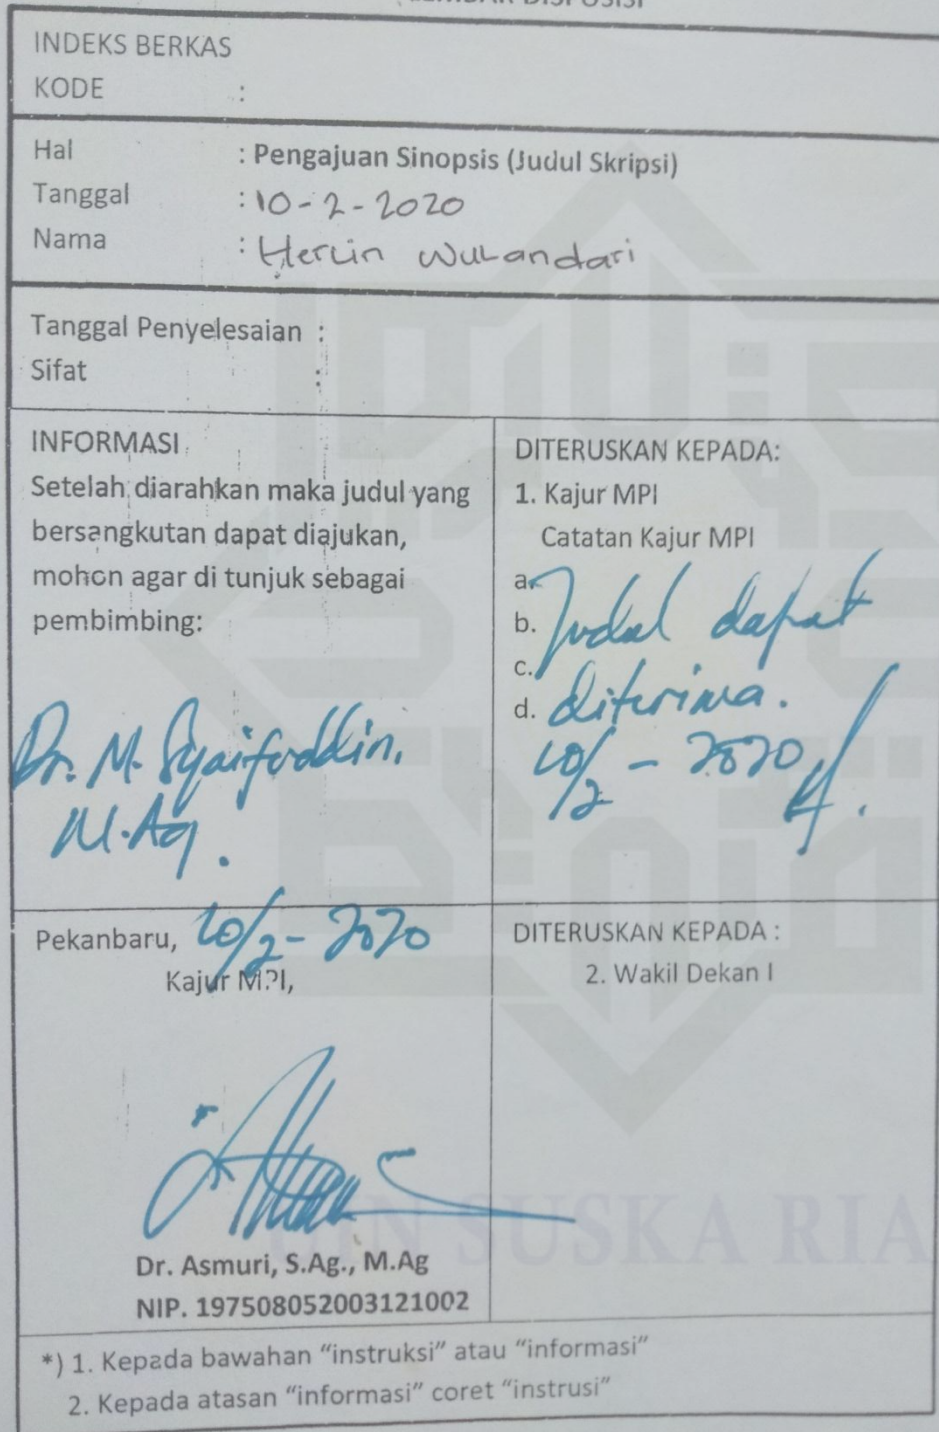 LEMBAR DISPOSISI
INDEKS BERKAS
KODE :
Hal : Pengajuan Sinopsis (Judul Skripsi)
Tanggal : 10-2-2020
Nama : Herlin Wulandari
Tanggal Penyelesaian :
Sifat :
INFORMASI
Setelah diarahkan maka judul yang
bersangkutan dapat diajukan,
mohon agar di tunjuk sebagai
pembimbing:
Dr. M. Syaifuddin,
M.Ag.
DITERUSKAN KEPADA:
1. Kajur MPI
Catatan Kajur MPI
a.
b. Judul dapat
c.
d. diterima.
10/2 - 2020
Pekanbaru, 10/2 - 2020
Kajur MPI,
Dr. Asmuri, S.Ag., M.Ag
NIP. 197508052003121002
DITERUSKAN KEPADA :
2. Wakil Dekan I
UIN SUSKA RIA
*) 1. Kepada bawahan “instruksi” atau “informasi”
2. Kepada atasan “informasi” coret “instrusi”